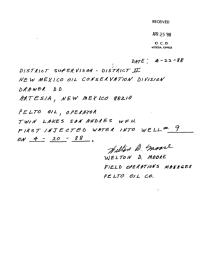 RECEIVED
APR 25 '88
O. C. D.
ARTESIA, OFFICE
DATE: 4-22-88
DISTRICT SUPERVISOR - DISTRICT II
NEW MEXICO OIL CONSERVATION DIVISION
DRAWER DD
ARTESIA, NEW MEXICO 88210
PELTO OIL, OPERATOR
TWIN LAKES SAN ANDRES WFU
FIRST INJECTED WATER INTO WELL # 9
ON 4 - 20 - 88.
Welton D. Moore
WELTON D. MOORE
FIELD OPERATIONS MANAGER
PELTO OIL CO.